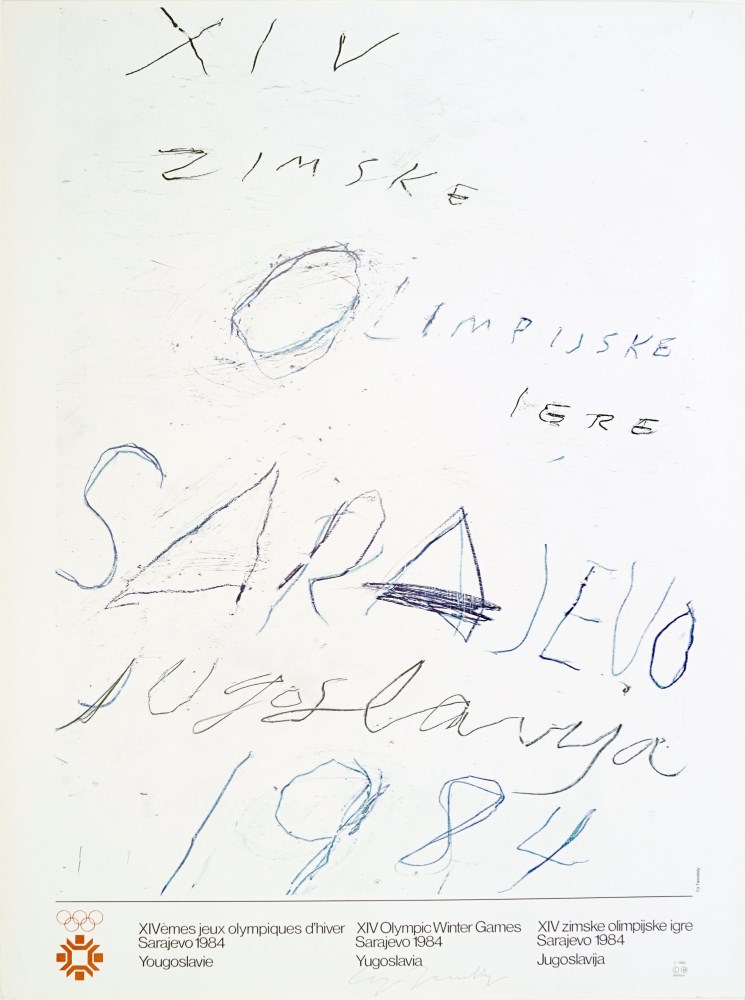 XIV
ZIMSKE
OLIMPIJSKE
IGRE
SARAJEVO
Jugoslavija
1984
Cy Twombly
XIVèmes jeux olympiques d'hiver
Sarajevo 1984
Yougoslavie
XIV Olympic Winter Games
Sarajevo 1984
Yugoslavia
XIV zimske olimpijske igre
Sarajevo 1984
Jugoslavija
Cy Twombly